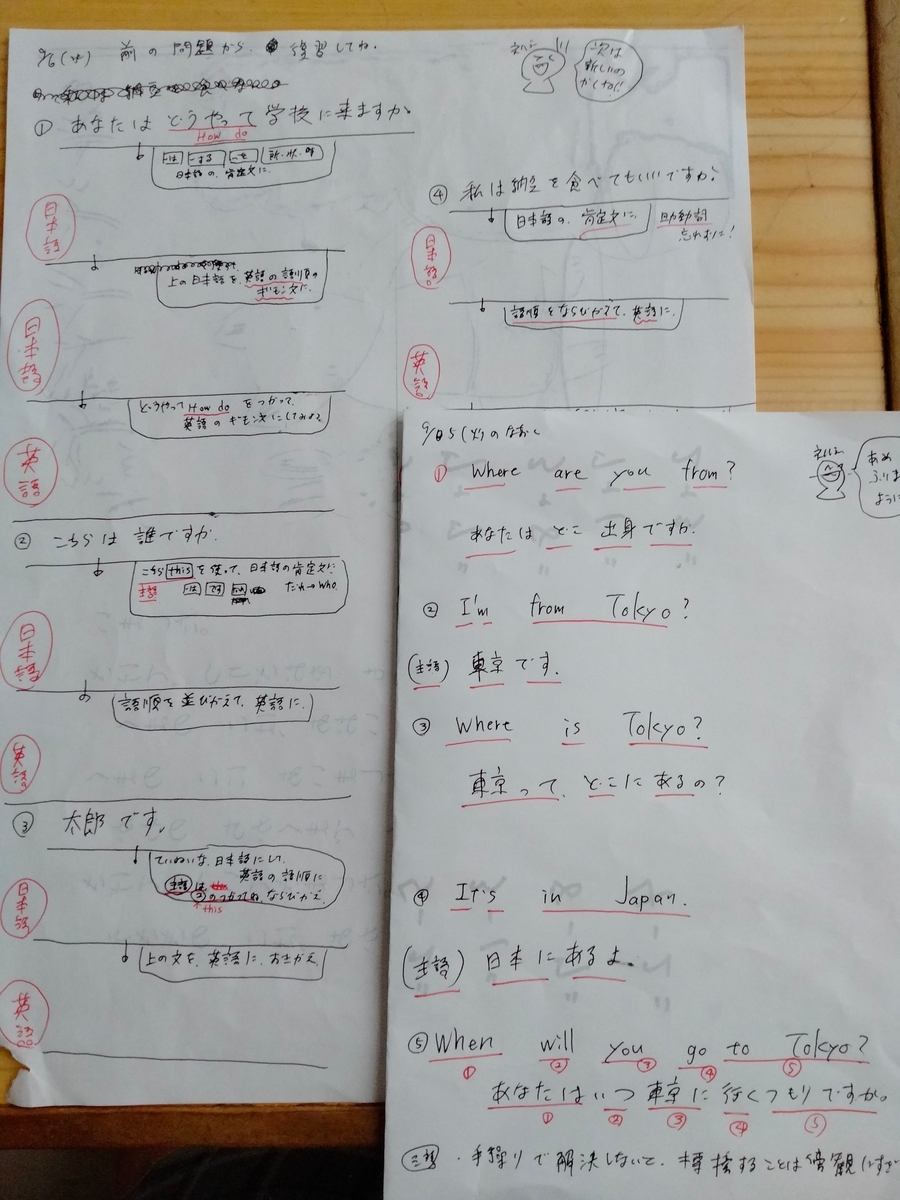 9/6(水) 前の問題から 練習してね.
次は
新しいの
かくね!!
① あなたは どうやって 学校に来ますか.
How do
は する を
日本語の、肯定文に.
日本語
上の日本語を、英語の語順の
ギモン文に.
日本語
どうやって How do をつかって、
英語のギモン文にしてみよう
英語
② こちらは 誰ですか.
こちら this を使って、日本語の肯定文に
主語 は です だれ→who.
日本語
語順を並びかえて、英語に.
英語
③ 太郎です.
ていねいな、日本語にして、
英語の語順に
主語 は
this
日本語
上の文を、英語に、おきかえ
英語
④ 私は納豆を食べてもいいですか?
日本語の、肯定文に 助動詞
忘れずに!
日本語
語順をならびかえて、英語に.
英語
9/5(火)のなおし
① Where are you from?
あなたは どこ 出身ですか.
あめ
② I'm from Tokyo?
(主語) 東京です.
③ Where is Tokyo?
東京って、どこにあるの?
④ It's in Japan.
(主語) 日本にあるよ.
⑤ When will you go to Tokyo?
① ② ③ ④ ⑤
あなたはいつ東京に行くつもりですか。
① ② ③ ④ ⑤
手操りで解決しないで、